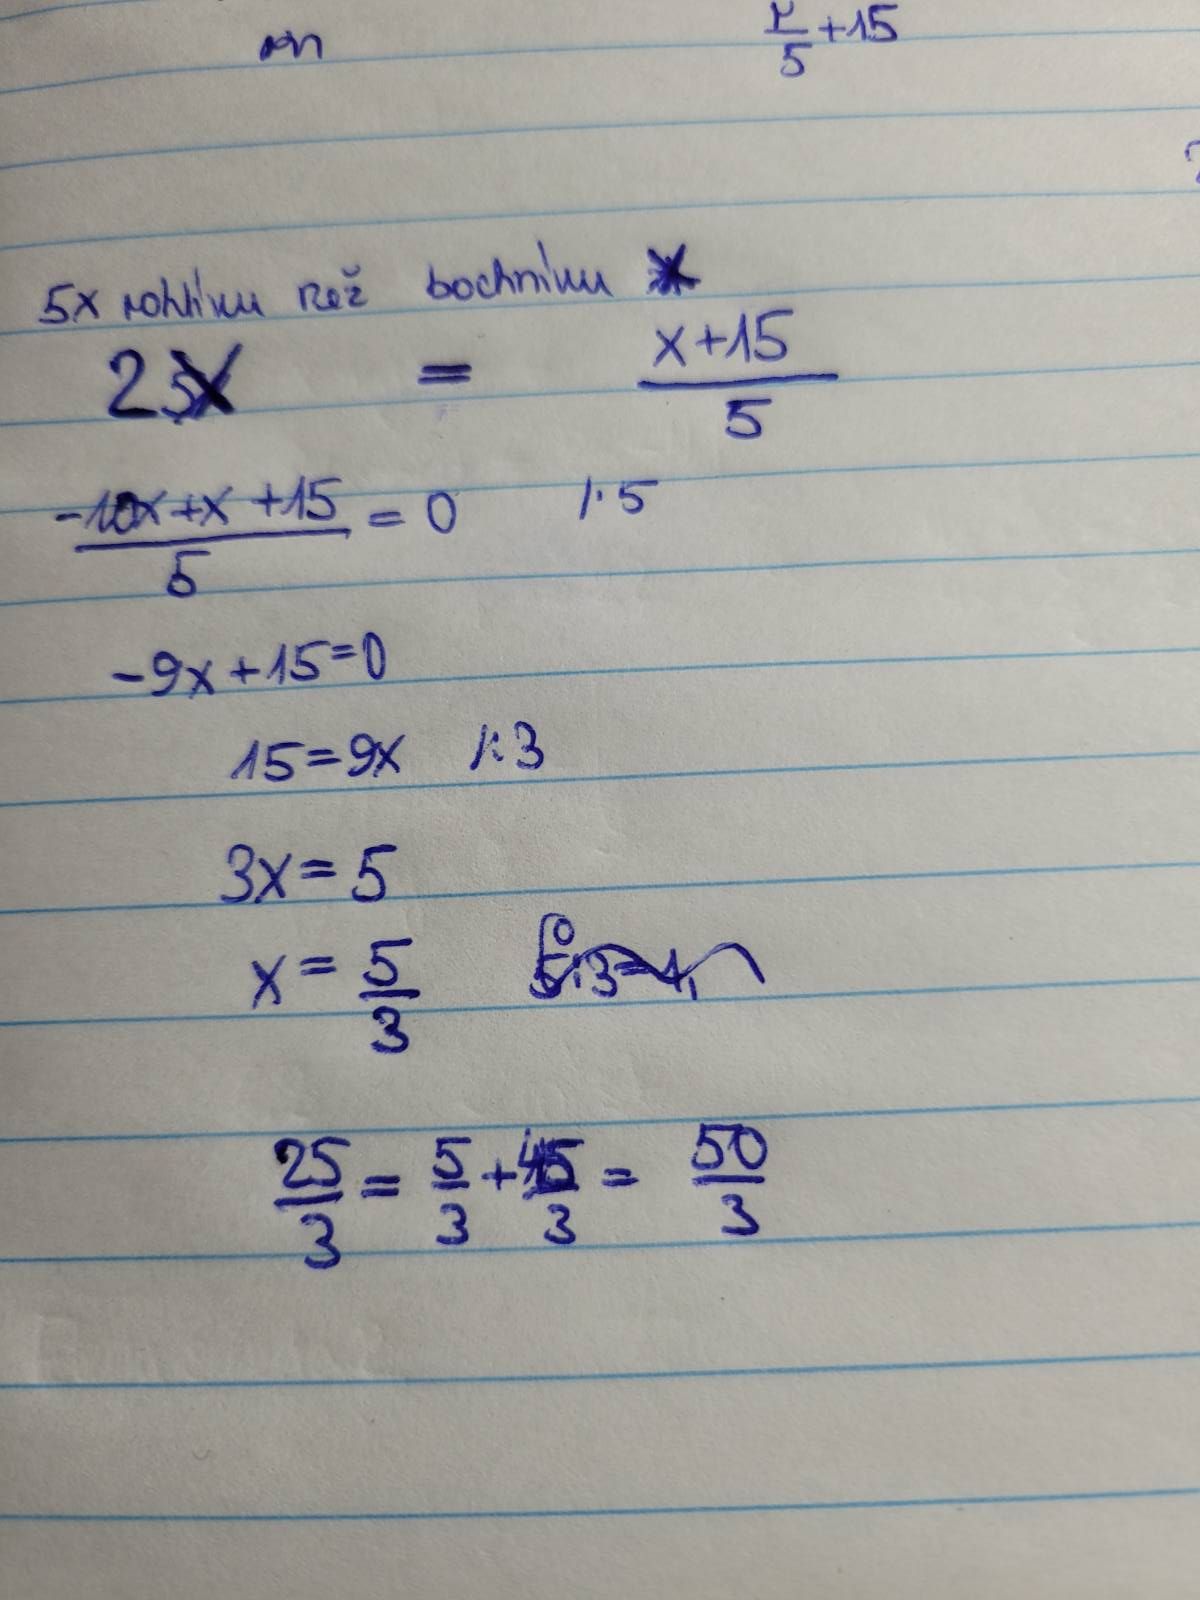 r/5 +15
5x rohlíku než bochníku
2x = (x+15)/5
(-10x+x+15)/5 = 0 /·5
-9x+15=0
15=9x /:3
3x=5
x=5/3
25/3 = 5/3 + 45/3 = 50/3